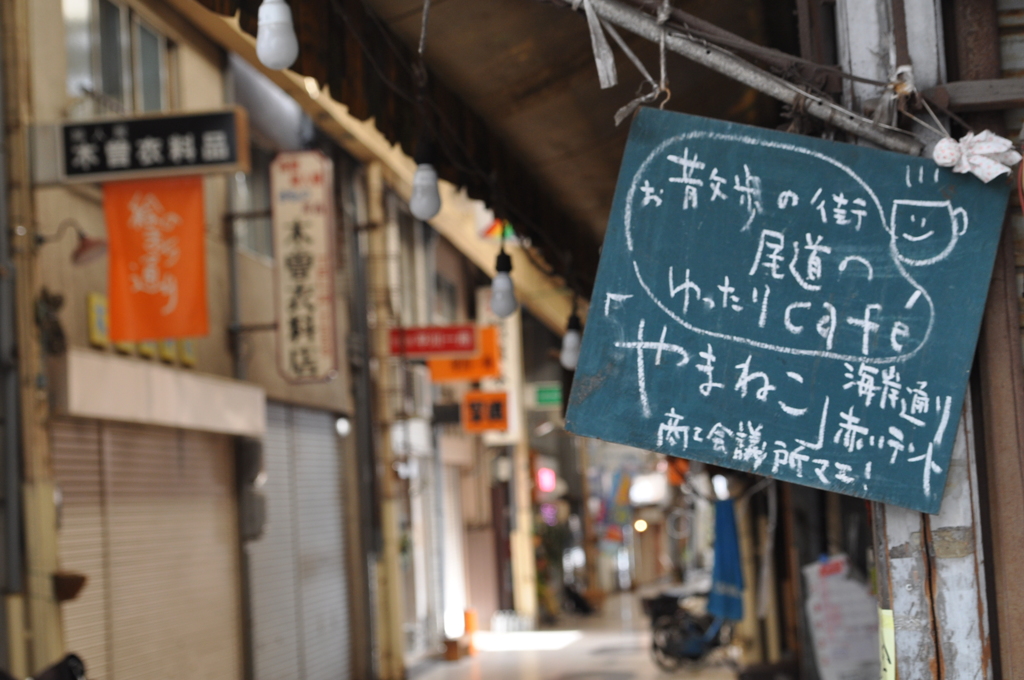 お散歩の街
尾道の
ゆったりcafe
「やまねこ」
海岸通り
赤いテント
商工会議所マエ!
木曽衣料品
絵のまち通り
木曽衣料店